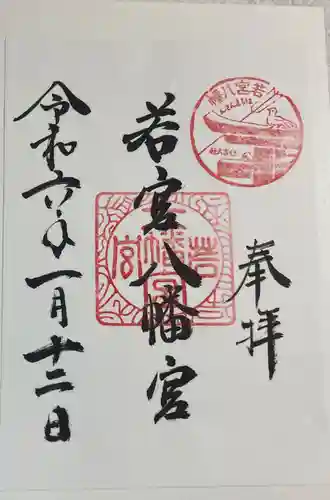 奉拝
若宮八幡宮
令和六年一月十二日
若宮八幡